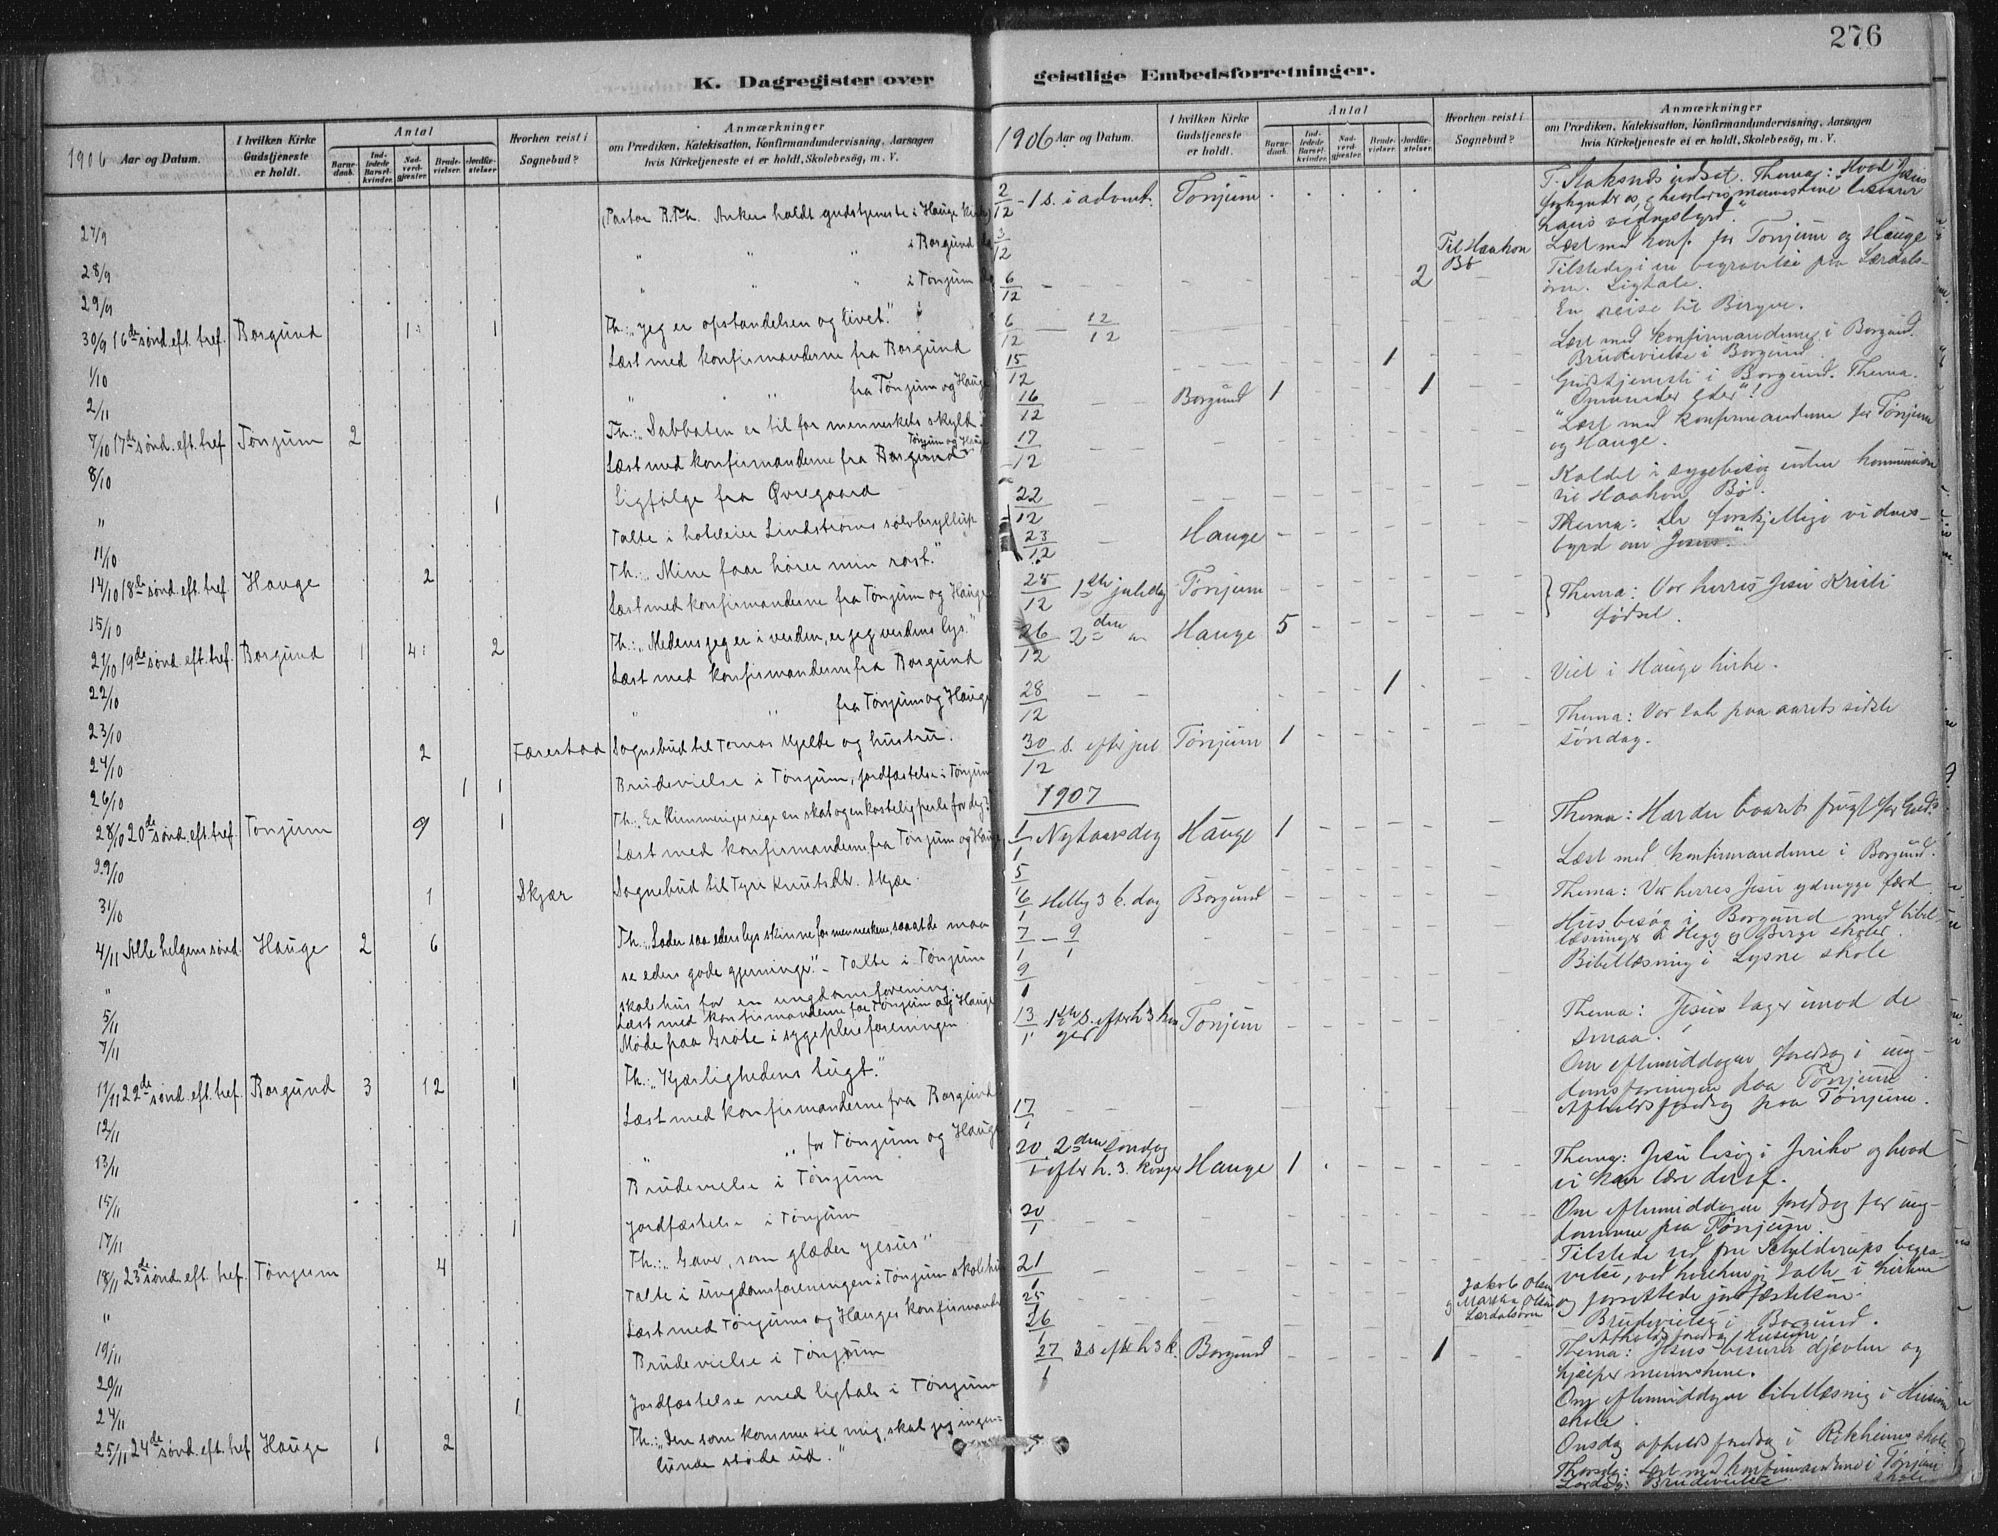 K. Dagregister over
1906 Aar og Datum.
I hvilken Kirke Gudstjeneste er holdt.
Antal
Barnedaab.
Indledede Barselkvinder.
Nadverdgjester
Brudevielser.
Jordfæstelser
Hvorhen reist i Sognebud?
Anmærkninger
om Prædiken, Katekisation, Konfirmandundervisning, Aarsagen
hvis Kirketjeneste ei er holdt, Skolebesög, m. V.
27/9 (Pastor R. Th. Anker holdt gudstjeneste i Hauge
28/9 " " " i Borgund
29/9 " " " i Tönjum
30/9 16de sönd. eft. tref. Borgund 1 1 Th: "Jeg er opstandelsen og livet."
1/10 Læst med konfirmanderne fra Borgund
2/11 " " fra Tönjum og Hauge
7/10 17de sönd. eft. tref. Tönjum 2 Th: "Sabbaten er til for menneskets skyld."
8/10 Læst med konfirmanderne fra Borgund Tönjum og Hauge
" 1 Ligfölge fra Øvregaard
11/10 Talte i hoteleier Lindströms sölvbryllup
14/10 18de sönd. eft. tref. Hauge 2 Th: "Mine faar hörer min röst."
15/10 Læst med konfirmanderne fra Tönjum og Hauge
21/10 19de sönd. eft. tref. Borgund 1 4 2 Th: "Medens jeg er i verden, er jeg verdens lys."
22/10 Læst med konfirmanderne fra Borgund
23/10 " " fra Tönjum og Hauge
24/10 2 Færestad Sognebud til Tomas Hjelde og hustru.
26/10 1 1 Brudevielse i Tönjum, jordfæstelse i Tönjum
28/10 20de sönd. eft. tref. Tönjum 9 1 Th: "Er Himmeriges rige en skat og en kostelig perle for dig?"
29/10 Læst med konfirmanderne fra Tönjum og Hauge
31/10 1 Skjær Sognebud til Tyri Knutsdtr. Skjær.
4/11 Alle helgens sönd. Hauge 2 6 Th: "Lader saa eders lys skinne for menneskene saa at de maa
se eders gode gjerninger." – Talte i Tönjum
" skolehus for en ungdomsforening.
5/11 Læst med konfirmanderne for Tönjum og Hauge
7/11 Möde paa Gröte i sygepleieforeningen
11/11 22de sönd. eft. tref. Borgund 3 12 1 Th: "Kjærlighedens lugt."
12/11 Læst med konfirmanderne fra Borgund
13/11 " " for Tönjum og Hauge
15/11 Brudevielse i Tönjum
17/11 1 Jordfæstelse i Tönjum
18/11 23de sönd. eft. tref. Tönjum 4 Th: "Gaver, som glæder Jesus"
" Talte i ungdomsforeningen i Tönjum skolehus
19/11 Læst med Tönjums og Hauges konfirmander
20/11 Brudevielse i Tönjum
24/11 1 Jordfæstelse med ligtale i Tönjum
25/11 24de sönd. eft. tref. Hauge 1 2 Th: "Den som kommer til mig, skal jeg ingen-
lunde støde ud."
276
geistlige Embedsforretninger.
1906 Aar og Datum.
I hvilken Kirke Gudstjeneste er holdt.
Antal
Barnedaab.
Indledede Barselkvinder.
Nadverdgjester
Brudevielser.
Jordfæstelser
Hvorhen reist i Sognebud?
Anmærkninger
om Prædiken, Katekisation, Konfirmandundervisning, Aarsagen
hvis Kirketjeneste ei er holdt, Skolebesög, m. V.
2/12 1 s. i advent. Tonjum Thema: Hvad Jesus
forkynder os, og hvorledes menneskene besvarer
hans vidnesbyrd."
3/12 Til Haakon Bö Læst med konf. for Tonjum og Hauge
6/12 2 Tilstede i en begravelse paa Lærdals-
ören. Ligtale.
6/12 – 12/12 En reise til Bergen.
15/12 1 Læst med konfirmanderne i Borgund.
Brudevielse i Borgund
16/12 Borgund 1 1 Gudstjeneste i Borgund. Thema.
"Omvender eder"!
17/12 Læst med konfirmanderne for Tönjum
og Hauge.
22/12 Kaldet i sygebesög uden kommunion
til Haakon Bö.
23/12 Hauge Thema: De forskjellige vidnes-
byrd om Jesus.
25/12 1ste juledag Tönjum } Thema: Vor herres Jesu Kristi
26/12 2den " Hauge 5 födsel.
28/12 1 Viet i Hauge kirke.
30/12 s. efter jul Tönjum 1 Thema: Vor tak paa aarets sidste
söndag.
1907
1/1 Nytaarsdag Hauge 1 Thema: Har du baaret frugt for Gud?
5/1 Læst med konfirmanderne i Borgund.
6/1 Hellig 3 k. dag Borgund Thema: Vor herres Jesu ydmyge færd
7/1 – 9/1 Husbesög i Borgund med bibel-
læsninger i Hegg og Berge skoler.
9/1 Bibellæsning i Lysne skole
13/1 1ste s. efter h 3 kon
ger Tonjum Thema: Jesus tager imod de
smaa.
Om eftermiddagen foredrag i ung-
domsforeningen paa Tönjum
17/1 Afholdsforedrag paa Tönjum.
20/1 2den söndag
efter h. 3. konger Hauge 1 Thema: Jesu besög i Jeriko og hvad
vi kan lære deraf.
20/1 Om eftermiddagen foredrag for ung-
dommen paa Tönjum
21/1 Tilstede ved fru Schjelderups begra-
velse, ved hvilken jeg talte i kirken
og forrettede jordfæstelsen.
25/1 Jakob Olsen
og Martha Olsen
Lærdalsören
26/1 Brudevielse i Borgund.
Afholdsforedrag i Husum
27/1 3 s efter h 3 k. Borgund 1 Thema: Jesus besvarer djævlen og
hjælper menneskene.
Om eftermiddagen bibellæsning i Husum
skole.
Onsdag afholdsforedrag i Rikheim skole
Thorsdag: Læst med konfirmanderne i Tönjum
skole
Lørdag: Brudevielse